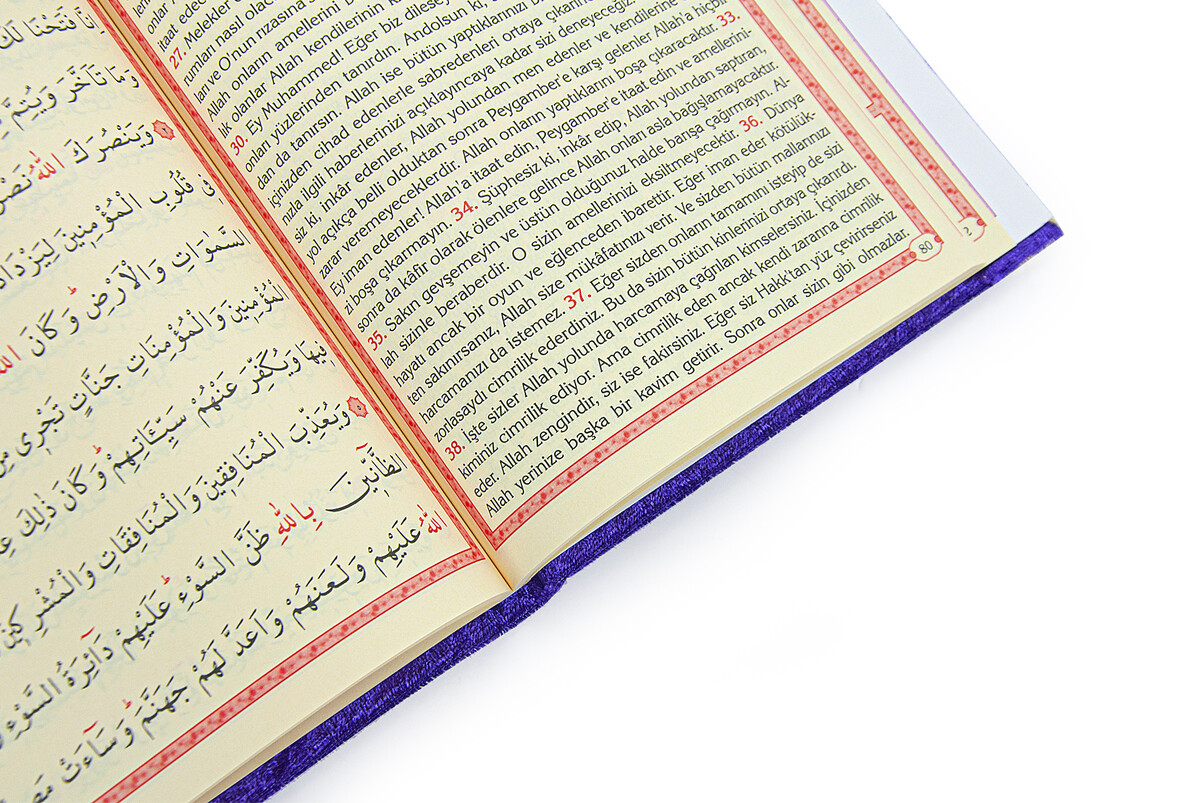 itaat edec
27. Melekler
rumları nasıl olac
ları ve O'nun rızasına
Allah, onların amellerini b
lik olanlar Allah kendilerinin k
30. Ey Muhammed! Eğer biz dilesey
onları yüzlerinden tanırdın. Andolsun ki,
dan da tanırsın. Allah ise bütün yaptıklarınızı b
içinizden cihad edenlerle sabredenleri ortaya çıkarın
nızla ilgili haberlerinizi açıklayıncaya kadar sizi deneyeceğiz
siz ki, inkâr edenler, Allah yolundan men edenler ve kendilerine
yol açıkça belli olduktan sonra Peygamber'e karşı gelenler Allah'a hiçbir
zarar veremeyeceklerdir. Allah onların yaptıklarını boşa çıkaracaktır. 33.
Ey iman edenler! Allah'a itaat edin, Peygamber'e itaat edin ve amellerini-
zi boşa çıkarmayın. 34. Şüphesiz ki, inkâr edip, Allah yolundan saptıran,
sonra da kâfir olarak ölenlere gelince Allah onları asla bağışlamayacaktır.
35. Sakın gevşemeyin ve üstün olduğunuz halde barışa çağırmayın. Al-
lah sizinle beraberdir. O sizin amellerinizi eksiltmeyecektir. 36. Dünya
hayatı ancak bir oyun ve eğlenceden ibarettir. Eğer iman eder kötülük-
ten sakınırsanız, Allah size mükâfatınızı verir. Ve sizden bütün mallarınızı
harcamanızı da istemez. 37. Eğer sizden onların tamamını isteyip de sizi
zorlasaydı cimrilik ederdiniz. Bu da sizin bütün kinlerinizi ortaya çıkarırdı.
38. İşte sizler Allah yolunda harcamaya çağrılan kimselersiniz. İçinizden
kiminiz cimrilik ediyor. Ama cimrilik eden ancak kendi zararına cimrilik
eder. Allah zengindir, siz ise fakirsiniz. Eğer siz Hakk'tan yüz çevirirseniz
Allah yerinize başka bir kavim getirir. Sonra onlar sizin gibi olmazlar.
80
2
اِنَّا فَتَحْنَا لَكَ
وَمَا تَاَخَّرَ وَيُتِمَّ
وَيَنْصُرَكَ اللّٰهُ نَصْرً
فِى قُلُوبِ الْمُؤْمِنٖينَ لِيَزْدَادُ
السَّمٰوَاتِ وَالْاَرْضِ وَكَانَ اللّٰهُ
الْمُؤْمِنٖينَ وَالْمُؤْمِنَاتِ جَنَّاتٍ تَجْرٖى مِنْ
فٖيهَا وَيُكَفِّرَ عَنْهُمْ سَيِّـَٔاتِهِمْ وَكَانَ ذٰلِكَ عِ
وَيُعَذِّبَ الْمُنَافِقٖينَ وَالْمُنَافِقَاتِ وَالْمُشْرِكٖينَ
الظَّٓانّٖينَ بِاللّٰهِ ظَنَّ السَّوْءِ عَلَيْهِمْ دَٓائِرَةُ السَّوْءِ
اللّٰهُ عَلَيْهِمْ وَلَعَنَهُمْ وَاَعَدَّ لَهُمْ جَهَنَّمَ وَسَٓاءَتْ مَصٖ